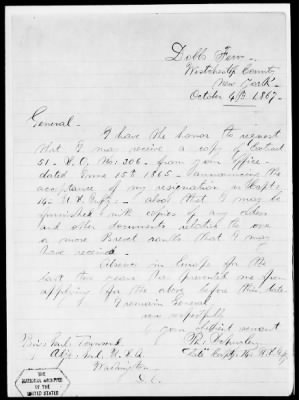 Dobbs Ferry
Westchester County
New York
October 4th 1867.
General
I have the honor to request
that I may receive a copy of Extract
51. S.O. No: 306. from your office
dated June 15th 1865 - announcing the
acceptance of my resignation as Capt:
14th U.S. Infy: - also that I may be
furnished with copies of any orders
and other documents relative to one
or more Brevet ranks that I may
have received.
Absence in Europe for the
last two years has prevented me from
applying for the above before this date.
I remain General,
very respectfully
your obedient servant
Late Capt: 14th U.S. Infy
Brig: Genl: Townsend
Adjt: Genl. U.S.A.
Washington
D.C.
THE
NATIONAL ARCHIVES
OF THE
UNITED STATES